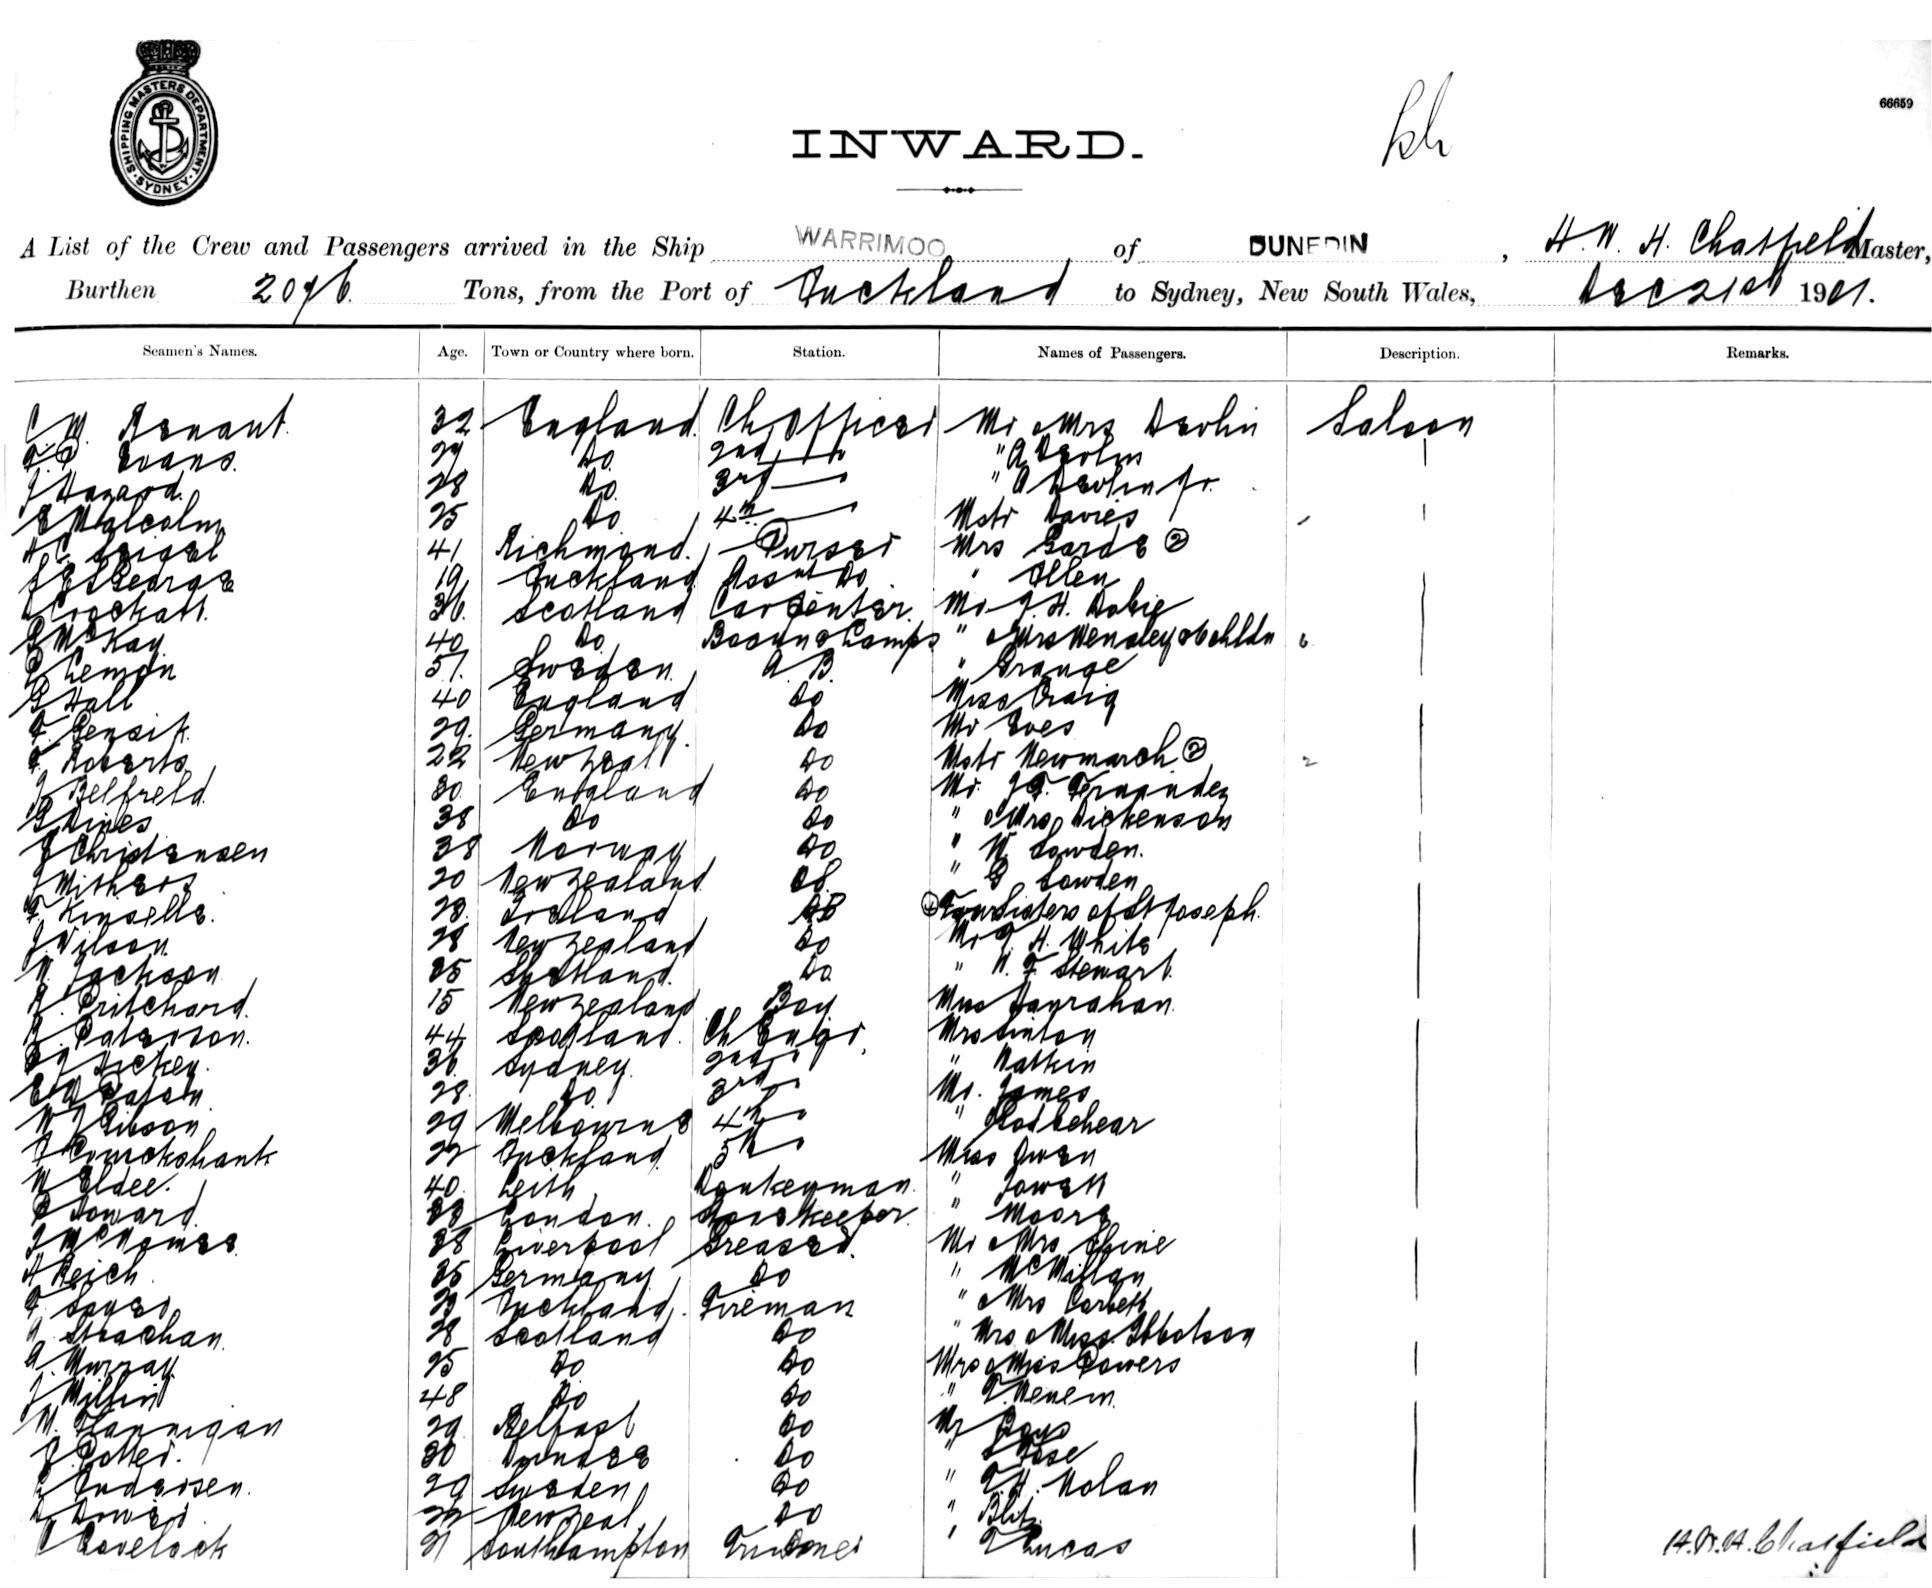 SHIPPING MASTERS DEPARTMENT. SYDNEY.
66659
INWARD.
A List of the Crew and Passengers arrived in the Ship WARRIMOO of DUNEDIN, H. W. H. Chatfield Master,
Burthen 2076 Tons, from the Port of Auckland to Sydney, New South Wales, Dec 21st 1901.
Seamen's Names. Age. Town or Country where born. Station. Names of Passengers. Description. Remarks.
C W. 32 England Ch Officer Mr & Mrs Devlin Saloon
Evans. 29 Do 2nd " A Devlin
J Hazard. 28 Do 3rd " A Devlin Jr.
E Malcolm 25 Do 4th Mstr Davies
H C. 41 Richmond. Purser Mrs Garde ②
St George 19 Auckland Assnt Do " Allen
Crockatt. 36 Scotland Carpenter. Mr J. H. Dobie
McKay 40 Do Bosun & Lamps " & Mrs Wensley & 6 chldn 6
Lemon 51. Sweden A. B. " Grange
G Hall 40 England Do Miss Craig
F. 29. Germany. Do Mr Eves
F. Roberts 22 New Zeal Do Mstr Newmarch ② 2
J Belfield 30 England Do Mr. J. F. Fernandez
G Hines 38 Do Do " & Mrs Dickenson
Christensen 38 Norway Do " W. Lowden.
J Withers 20 New Zealand OS. " G Lowden
F Kinsella. 23. Ireland AB ④ Four Sisters of St Joseph.
J Wilson. 28 New Zealand Do Mr J. H. White
W. Jackson 25 Shetland. Do " W. F. Stewart.
Pritchard. 15 New Zealand Boy Miss Hanrahan.
Paterson. 44 Scotland. Ch Engr. Mrs Linton
Dickey. 36 Sydney. 2nd " " Watkin
28. Do 3rd " Mr. James
W J Gibson 29 Melbourne 4th " " Rodbehear
J Cruickshank 22 Auckland 5th " Miss Owen
W Eldee. 40. Leith Donkeyman. " Jowett
Howard. 33 London. Storekeeper. " Moore
J McNamee 38 Liverpool Greaser. Mr & Mrs Shine
A Reich. 35 Germany Do " McMillan
F. 23 Auckland. Fireman " & Mrs Corbett
A. Strachan. 28 Scotland Do " Mrs & Miss. Ibbotson
A. Murray. 25 Do Do Mrs & Miss Powers
J. 48 Do Do "
W. Flannigan 29 Belfast Do Mr
J. Potter. 30 Dundee Do " Rose
Andersen. 29 Sweden Do " T. H. Nolan
22 New Zeal. Do "
C Lovelock 21 Southampton Trimmer " Lucas
H. W. H. Chatfield